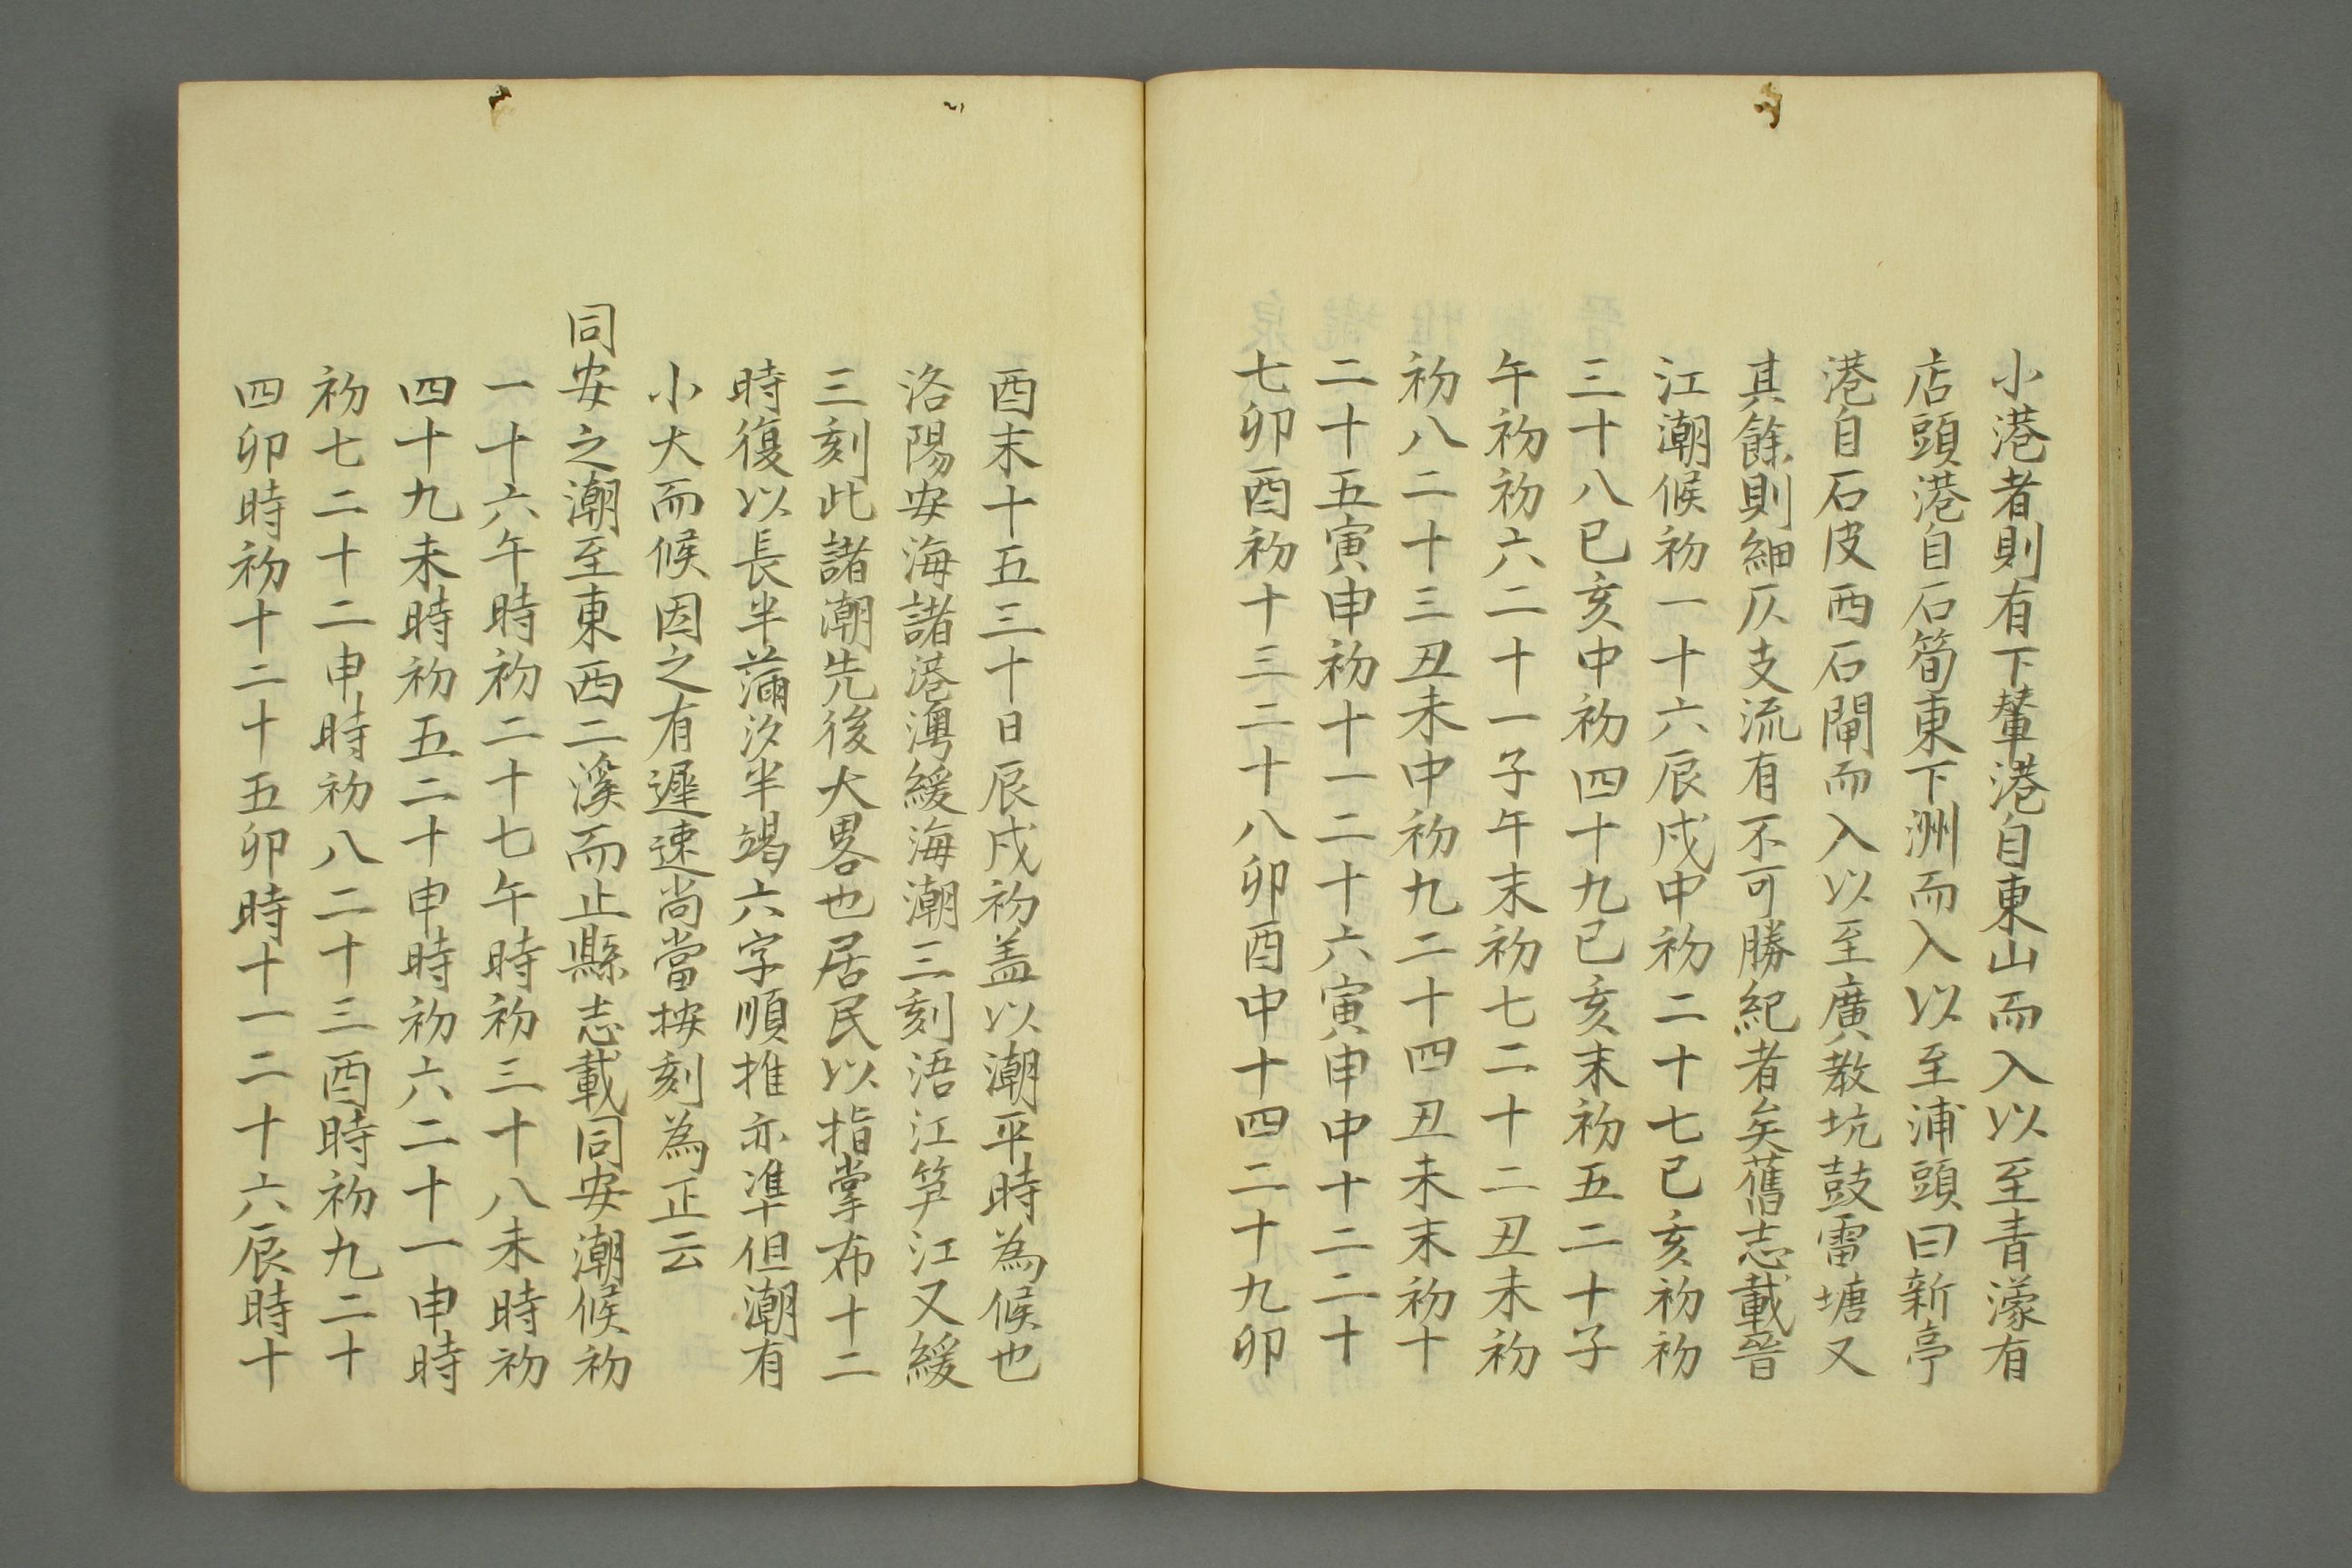 小港者則有下輦港自東山而入以至青濛有
店頭港自石筍東下洲而入以至浦頭曰新亭
港自石皮西石閘而入以至廣教坑鼓雷塘又
其餘則細仄支流有不可勝紀者矣舊志載晉
江潮候初一十六辰戌中初二十七巳亥初初
三十八巳亥中初四十九巳亥末初五二十子
午初初六二十一子午末初七二十二丑未初
初八二十三丑未中初九二十四丑未末初十
二十五寅申初十一二十六寅申中十二二十
七卯酉初十三二十八卯酉中十四二十九卯
酉末十五三十日辰戌初盖以潮平時為候也
洛陽安海諸港澚緩海潮三刻浯江笋江又緩
三刻此諸潮先後大畧也居民以指掌布十二
時復以長半滿汐半竭六字順推亦準但潮有
小大而候因之有遲速尚當按刻為正云
同安之潮至東西二溪而止縣志載同安潮候初
一十六午時初二十七午時初三十八未時初
四十九未時初五二十申時初六二十一申時
初七二十二申時初八二十三酉時初九二十
四卯時初十二十五卯時十一二十六辰時十